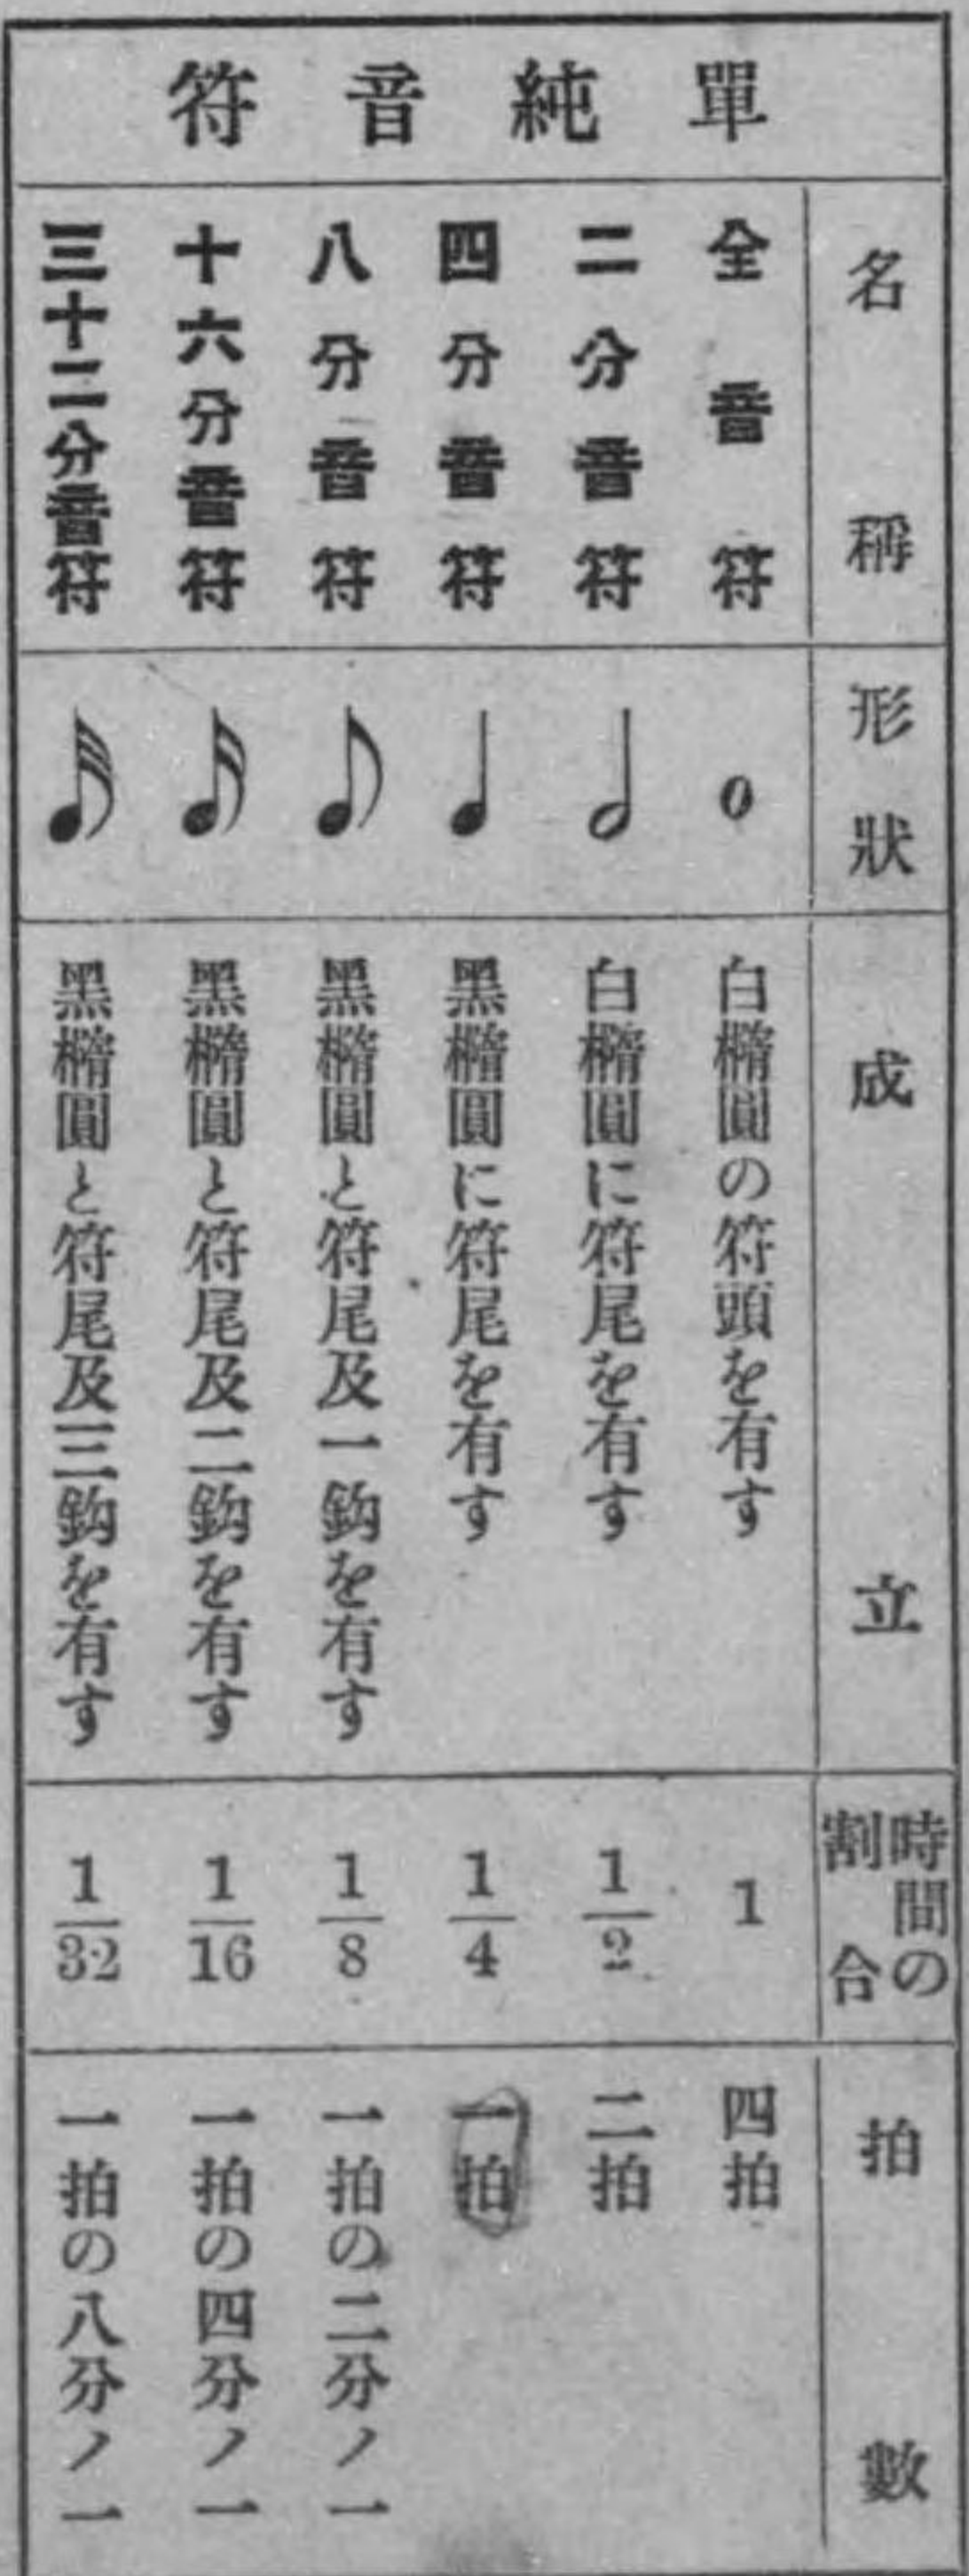 單純音符
名稱
形狀
成立
時間の
割合
拍數
全音符
白橢圓の符頭を有す
1
四拍
二分音符
白橢圓に符尾を有す
1/2
二拍
四分音符
黑橢圓に符尾を有す
1/4
一拍
八分音符
黑橢圓と符尾及一鈎を有す
1/8
一拍の二分ノ一
十六分音符
黑橢圓と符尾及二鈎を有す
1/16
一拍の四分ノ一
三十二分音符
黑橢圓と符尾及三鈎を有す
1/32
一拍の八分ノ一